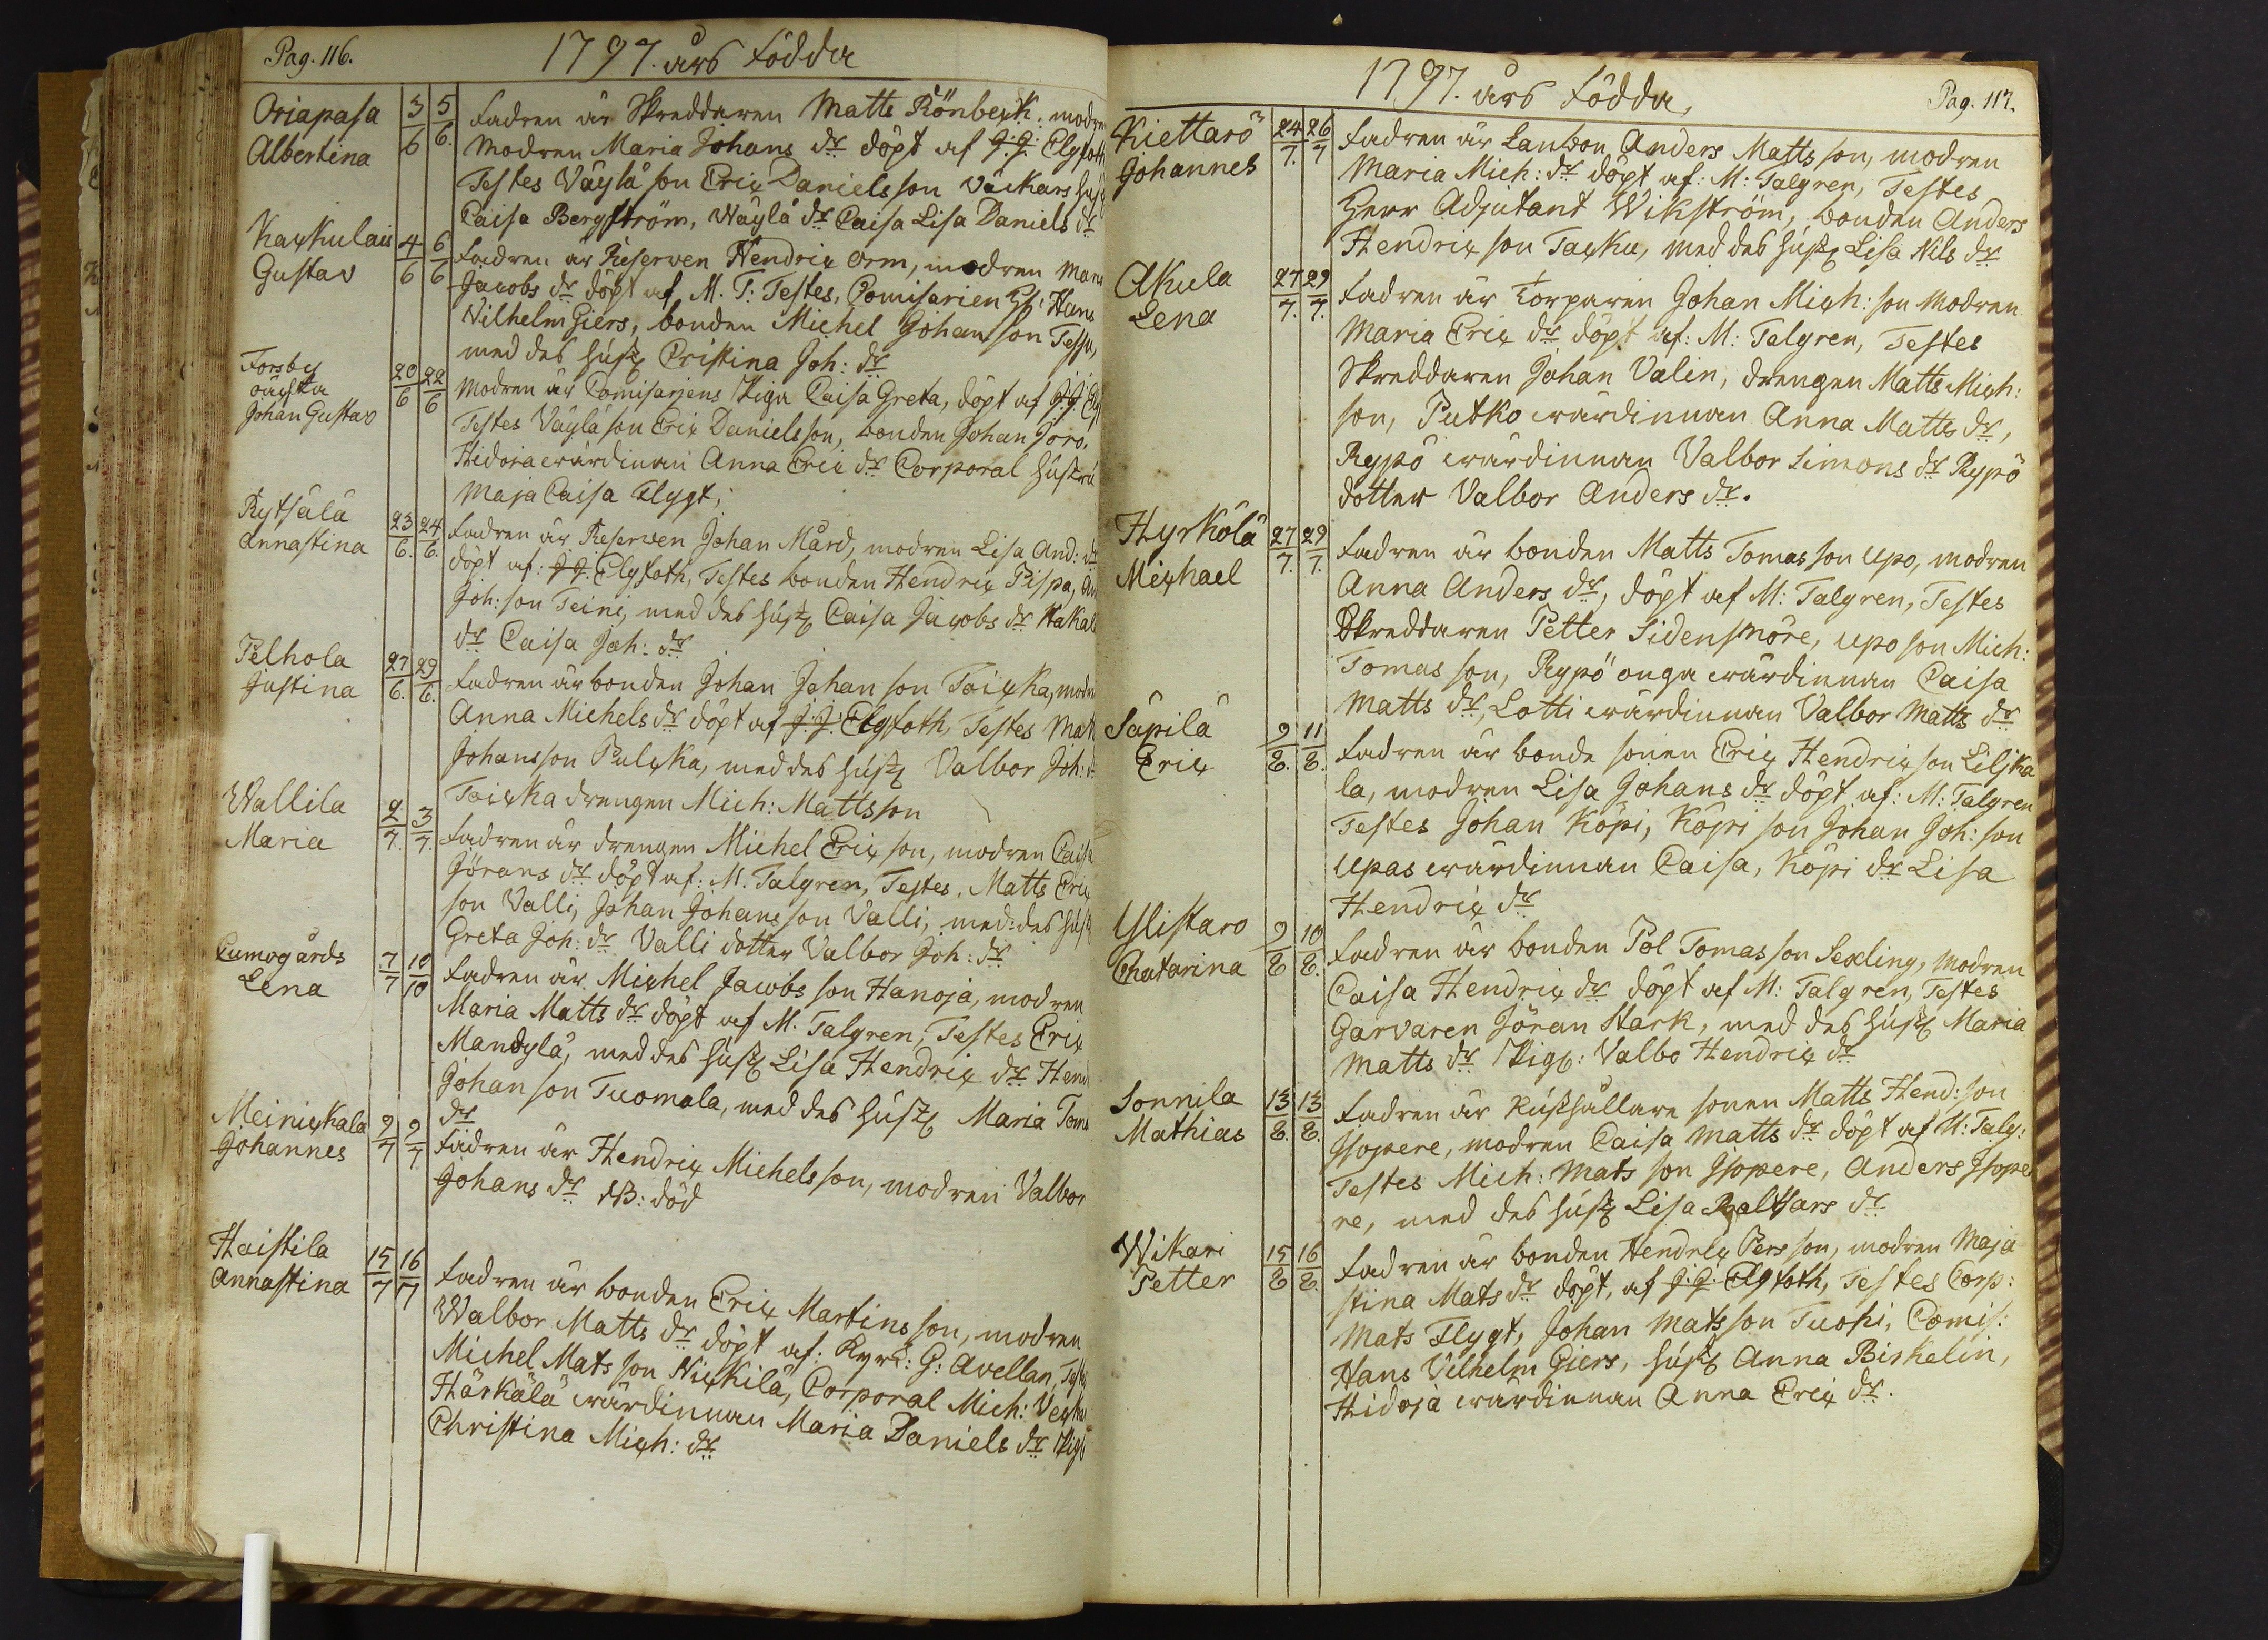 Pag. 116.
1797. års Födda
Oriapasa
Albertina
3/6 5/6.
Fadren är Skreddaren Matts Rönbeck. modren
Modren Maria Johans dr döpt af J.J. Elgfoth
Testes Väylä son Eric Daniels son Väckars hust
Caisa Bergström, Wäylä dr Caisa Lisa Daniels dr
Kackulais
Gustav
4/6 6/6
Fadren är Reserven Hendric Orm, modren Maria
Jacobs dr döpt af M. T: Testes, Comisarien Hr: Hans
Vilhelm Giers, bonden Michel Johans son Tessu,
med des hust Cristina Joh: dr
Forsby
oäckta
Johan Gustav
20/6 22/6
Modren är Comisarjens Piga Caisa Greta, döpt af J.J. Elg
Testes Väylä son Eric Daniels son, bonden Johan Joro.
Hidoja wärdinnan Anna Eric dr Corporal hustru
Maja Caisa Flygt,
Rytsälä
Annastina
23/6. 24/6.
Fadren är Reserven Johan Mård, modren Lisa And: dr
döpt af: J.J. Elgfoth, Testes bonden Hendric Pispa, An
Joh: son Teini, med des hust Caisa Jacobs dr Kakal
dr Caisa Joh: dr
Pelhola
Justina
27/6. 29/6.
Fadren är bonden Johan Johan son Toicka, modren
Anna Michels dr döpt af J.J. Elgfoth, Testes Mat
Johansson Pulcka, med des hust Valbor Joh: dr
Toicka drengen Mich: Mattsson
Wallila
Maria
2/7. 3/7.
Fadren är drengen Michel Eric son, modren Caisa
Jörans dr döpt af: M. Talgren, Testes, Matts Eric
son Valli, Johan Johans son Valli, med: des hust
Greta Joh: dr Valli dotter Valbor Joh: dr
Cumogårds
Lena
7/7 10/10
Fadren är Michel Jacobs son Hanoja, modren
Maria Matts dr döpt af M. Talgren, Testes Eric
Mandylä, med des hust Lisa Hendric dr Hend
Johan son Tuomola, med des hust Maria Toma
dr
Meinickala
Johannes
9/7 9/7
Fadren är Hendric Michels son, modren Valbor
Johans dr NB: död
Haistila
Annastina
15/7 16/7
Fadren är bonden Eric Martins son, modren
Walbor Matts dr döpt af: Kyrk: G: Avellan, Test
Michel Mats son Nickilä, Corporal Mich: Veck
Härkälä wärdinnan Maria Daniels dr Piga
Christina Mich: dr
1797. års Födda,
Pag. 117.
Kiettarö
Johannes
24/7. 26/7
Fadren är Lantbon Anders Matts son, modren
Maria Mich: dr döpt af: M: Talgren, Testes
Herr Adjutant Wikström, bonden Anders
Hendric son Tacku, med des hust Lisa Nils dr
Akula
Lena
27/7. 29/7.
Fadren är Torparen Johan Mich: son Modren
Maria Eric dr döpt af: M: Talgren, Testes
Skreddaren Johan Valin, drengen Matts Mich:
son, Putko wärdinnan Anna Matts dr,
Rypö wärdinnan Valbor Simons dr Rypö
dotter Valbor Anders dr.
Hyrkölä
Michael
27/7. 29/7.
Fadren är bonden Matts Tomas son Upo, modren
Anna Anders dr, döpt af M: Talgren, Testes
Skreddaren Petter Sidensnöre, Upo son Mich:
Tomas son, Rypö onga wärdinnan Caisa
Matts dr, Lotti wärdinnan Valbor Matts dr
Säpilä
Eric
9/8. 11/8.
Fadren är bonde sonen Eric Hendric son Liljka
la, modren Lisa Johans dr döpt af: M: Talgren
Testes Johan Köpi, Köpi son Johan Joh: son
Upas wärdinnan Caisa, Köpi dr Lisa
Hendric dr
Ylistaro
Chatarina
9/8 10/8.
Fadren är bonden Pol Tomas son Sexling, Modren
Caisa Hendric dr döpt af M: Talgren, Testes
Garvaren Jöran Stark, med des hust Maria
Matts dr Pig: Valbo Hendric dr
Sonnila
Mathias
13/8. 13/8.
Fadren är Rusthållare sonen Matts Hend: son
Isopere, modren Caisa Matts dr döpt af M: Talg:
Testes Mich: Mats son Isopere, Anders Isope
re, med des hust Lisa Baltsars dr
Wikari
Petter
15/8 16/8.
Fadren är bonden Hendric Pers son, modren Maja
stina Mats dr döpt, af J.J. Elgfoth, Testes Corp:
Mats Flygt, Johan Mats son Tuohi, Comis:
Hans Vilhelm Giers, hust Anna Birkelin,
Hidoja wärdinnan Anna Eric dr.